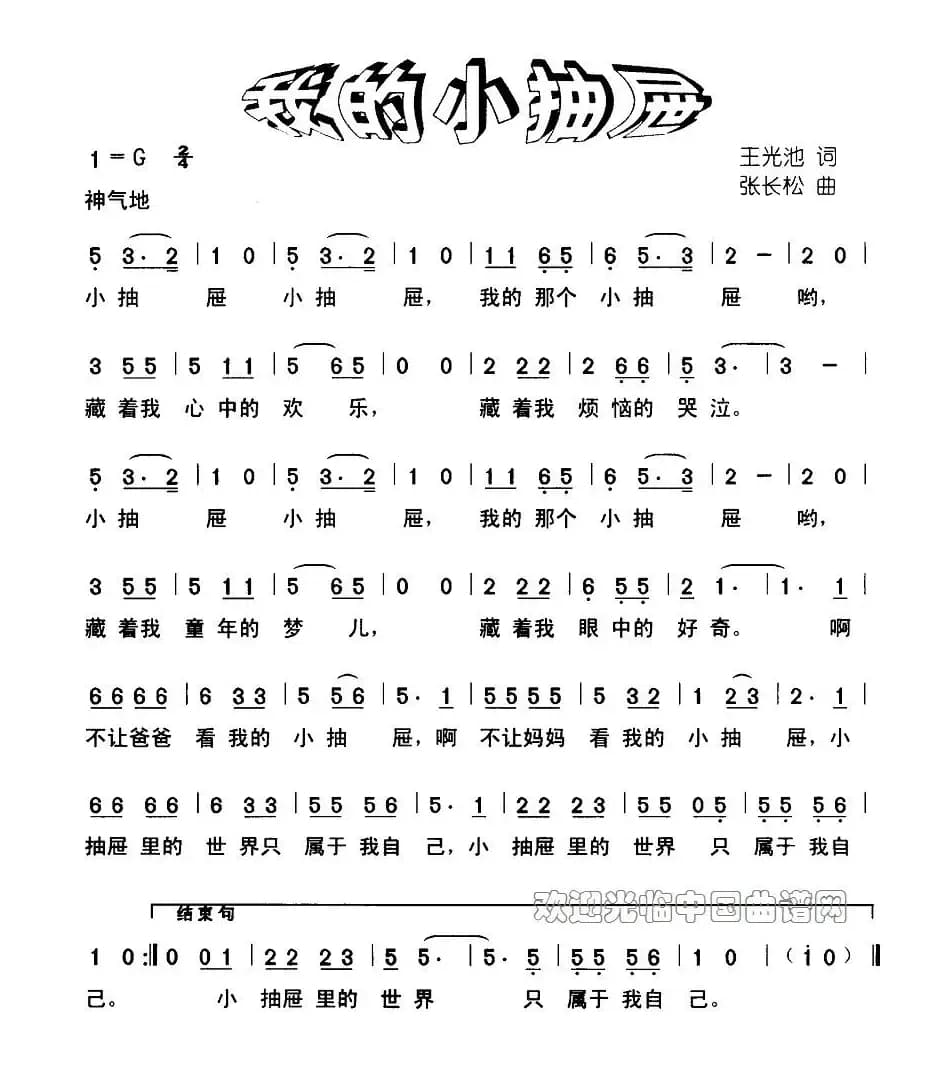 我的小抽屉
1=G 2/4
王光池 词
神气地
张长松 曲
5 3· 2 | 1 0 | 5 3· 2 | 1 0 | 1 1 6 5 | 6 5· 3 | 2 - | 2 0 |
小 抽 屉 小 抽 屉, 我的 那个 小 抽 屉 哟,
3 5 5 | 5 1 1 | 5 6 5 | 0 0 | 2 2 2 | 2 6 6 | 5 3· | 3 - |
藏 着我 心 中的 欢 乐, 藏 着我 烦 恼的 哭 泣。
5 3· 2 | 1 0 | 5 3· 2 | 1 0 | 1 1 6 5 | 6 5· 3 | 2 - | 2 0 |
小 抽 屉 小 抽 屉, 我的 那个 小 抽 屉 哟,
3 5 5 | 5 1 1 | 5 6 5 | 0 0 | 2 2 2 | 6 5 5 | 2 1· | 1· 1 |
藏 着我 童 年的 梦 儿, 藏 着我 眼 中的 好 奇。 啊
6 6 6 6 | 6 3 3 | 5 5 6 | 5· 1 | 5 5 5 5 | 5 3 2 | 1 2 3 | 2· 1 |
不让爸爸 看 我的 小 抽 屉,啊 不让妈妈 看 我的 小 抽 屉,小
6 6 6 6 | 6 3 3 | 5 5 5 6 | 5· 1 | 2 2 2 3 | 5 5 0 5 | 5 5 5 6 |
抽屉 里的 世 界只 属于 我自 己,小 抽屉 里的 世 界 只 属于 我自
结束句
欢迎光临中国曲谱网
1 0 :‖ 0 0 1 | 2 2 2 3 | 5 5· | 5· 5 | 5 5 6 6 | 1 0 | (i 0) ‖
己。 小 抽屉 里的 世 界 只 属于 我自 己。